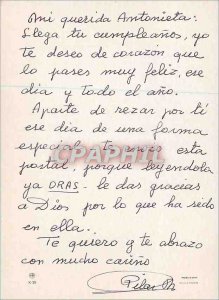 Mi querida Antonieta:
Llega tu cumpleaños, yo
te deseo de corazón que
lo pases muy feliz, ese
día y todo el año.
Aparte de rezar por tí
ese día de una forma
especial, te envío esta
postal, porque leyendola
ya ORAS. le das gracias
a Dios por lo que ha sido
en ella..
Te quiero y te abrazo
con mucho cariño
Pilar M
CPAPHIL